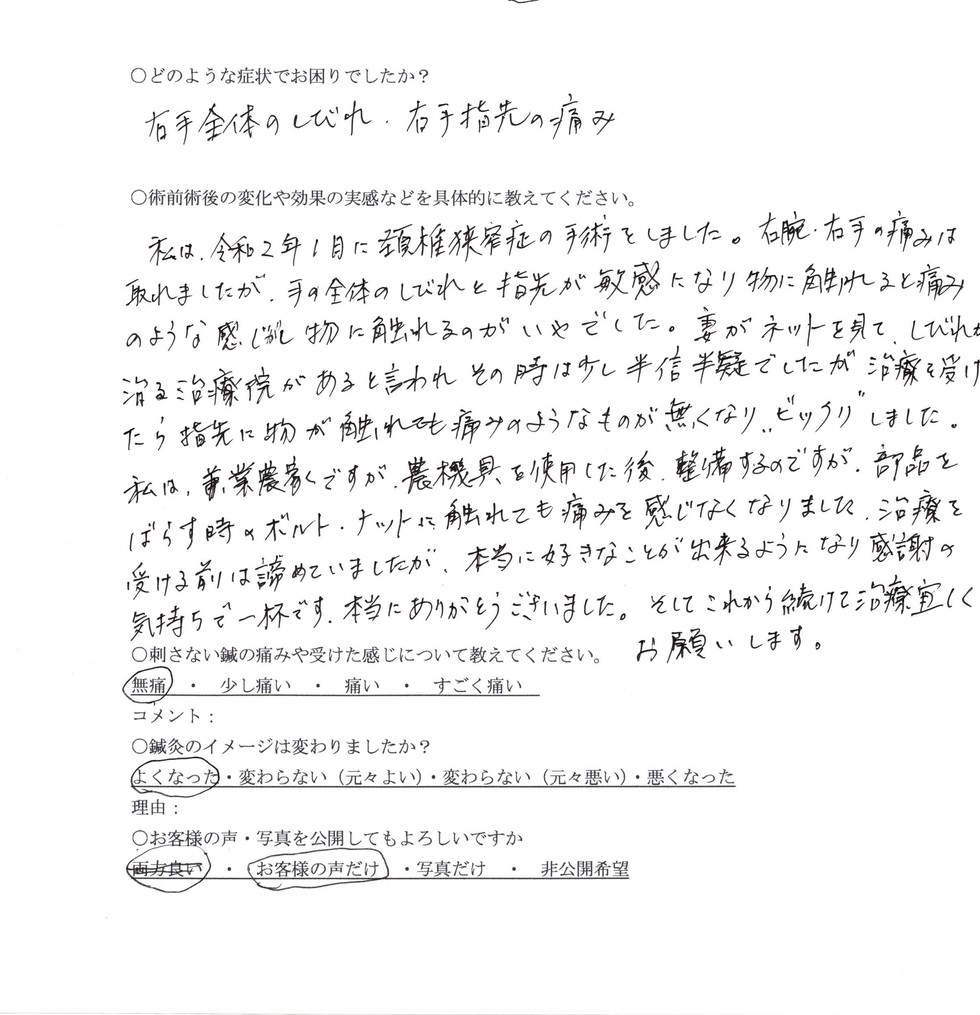 ○どのような症状でお困りでしたか？
右手全体のしびれ．右手指先の痛み
○術前術後の変化や効果の実感などを具体的に教えてください。
私は、令和2年1月に頚椎狭窄症の手術をしました。右腕・右手の痛みは
取れましたが、手の全体のしびれと指先が敏感になり物に触れると痛み
のような感じがし物に触れるのがいやでした。妻がネットを見て、しびれが
治る治療院があると言われその時は少し半信半疑でしたが治療を受け
たら指先に物が触れても痛みのようなものが無くなり〝ビックリ〟しました。
私は、兼業農家ですが、農機具を使用した後、整備するのですが、部品を
ばらす時のボルト・ナットに触れても痛みを感じなくなりました、治療を
受ける前は諦めていましたが、本当に好きなことが出来るようになり感謝の
気持ちで一杯です．本当にありがとうございました。そしてこれから続けて治療宜しく
お願いします。
○刺さない鍼の痛みや受けた感じについて教えてください。
無痛　・　少し痛い　・　痛い　・　すごく痛い
コメント：
○鍼灸のイメージは変わりましたか？
よくなった・変わらない（元々よい）・変わらない（元々悪い）・悪くなった
理由：
○お客様の声・写真を公開してもよろしいですか
両方良い　・　お客様の声だけ　・写真だけ　・　非公開希望